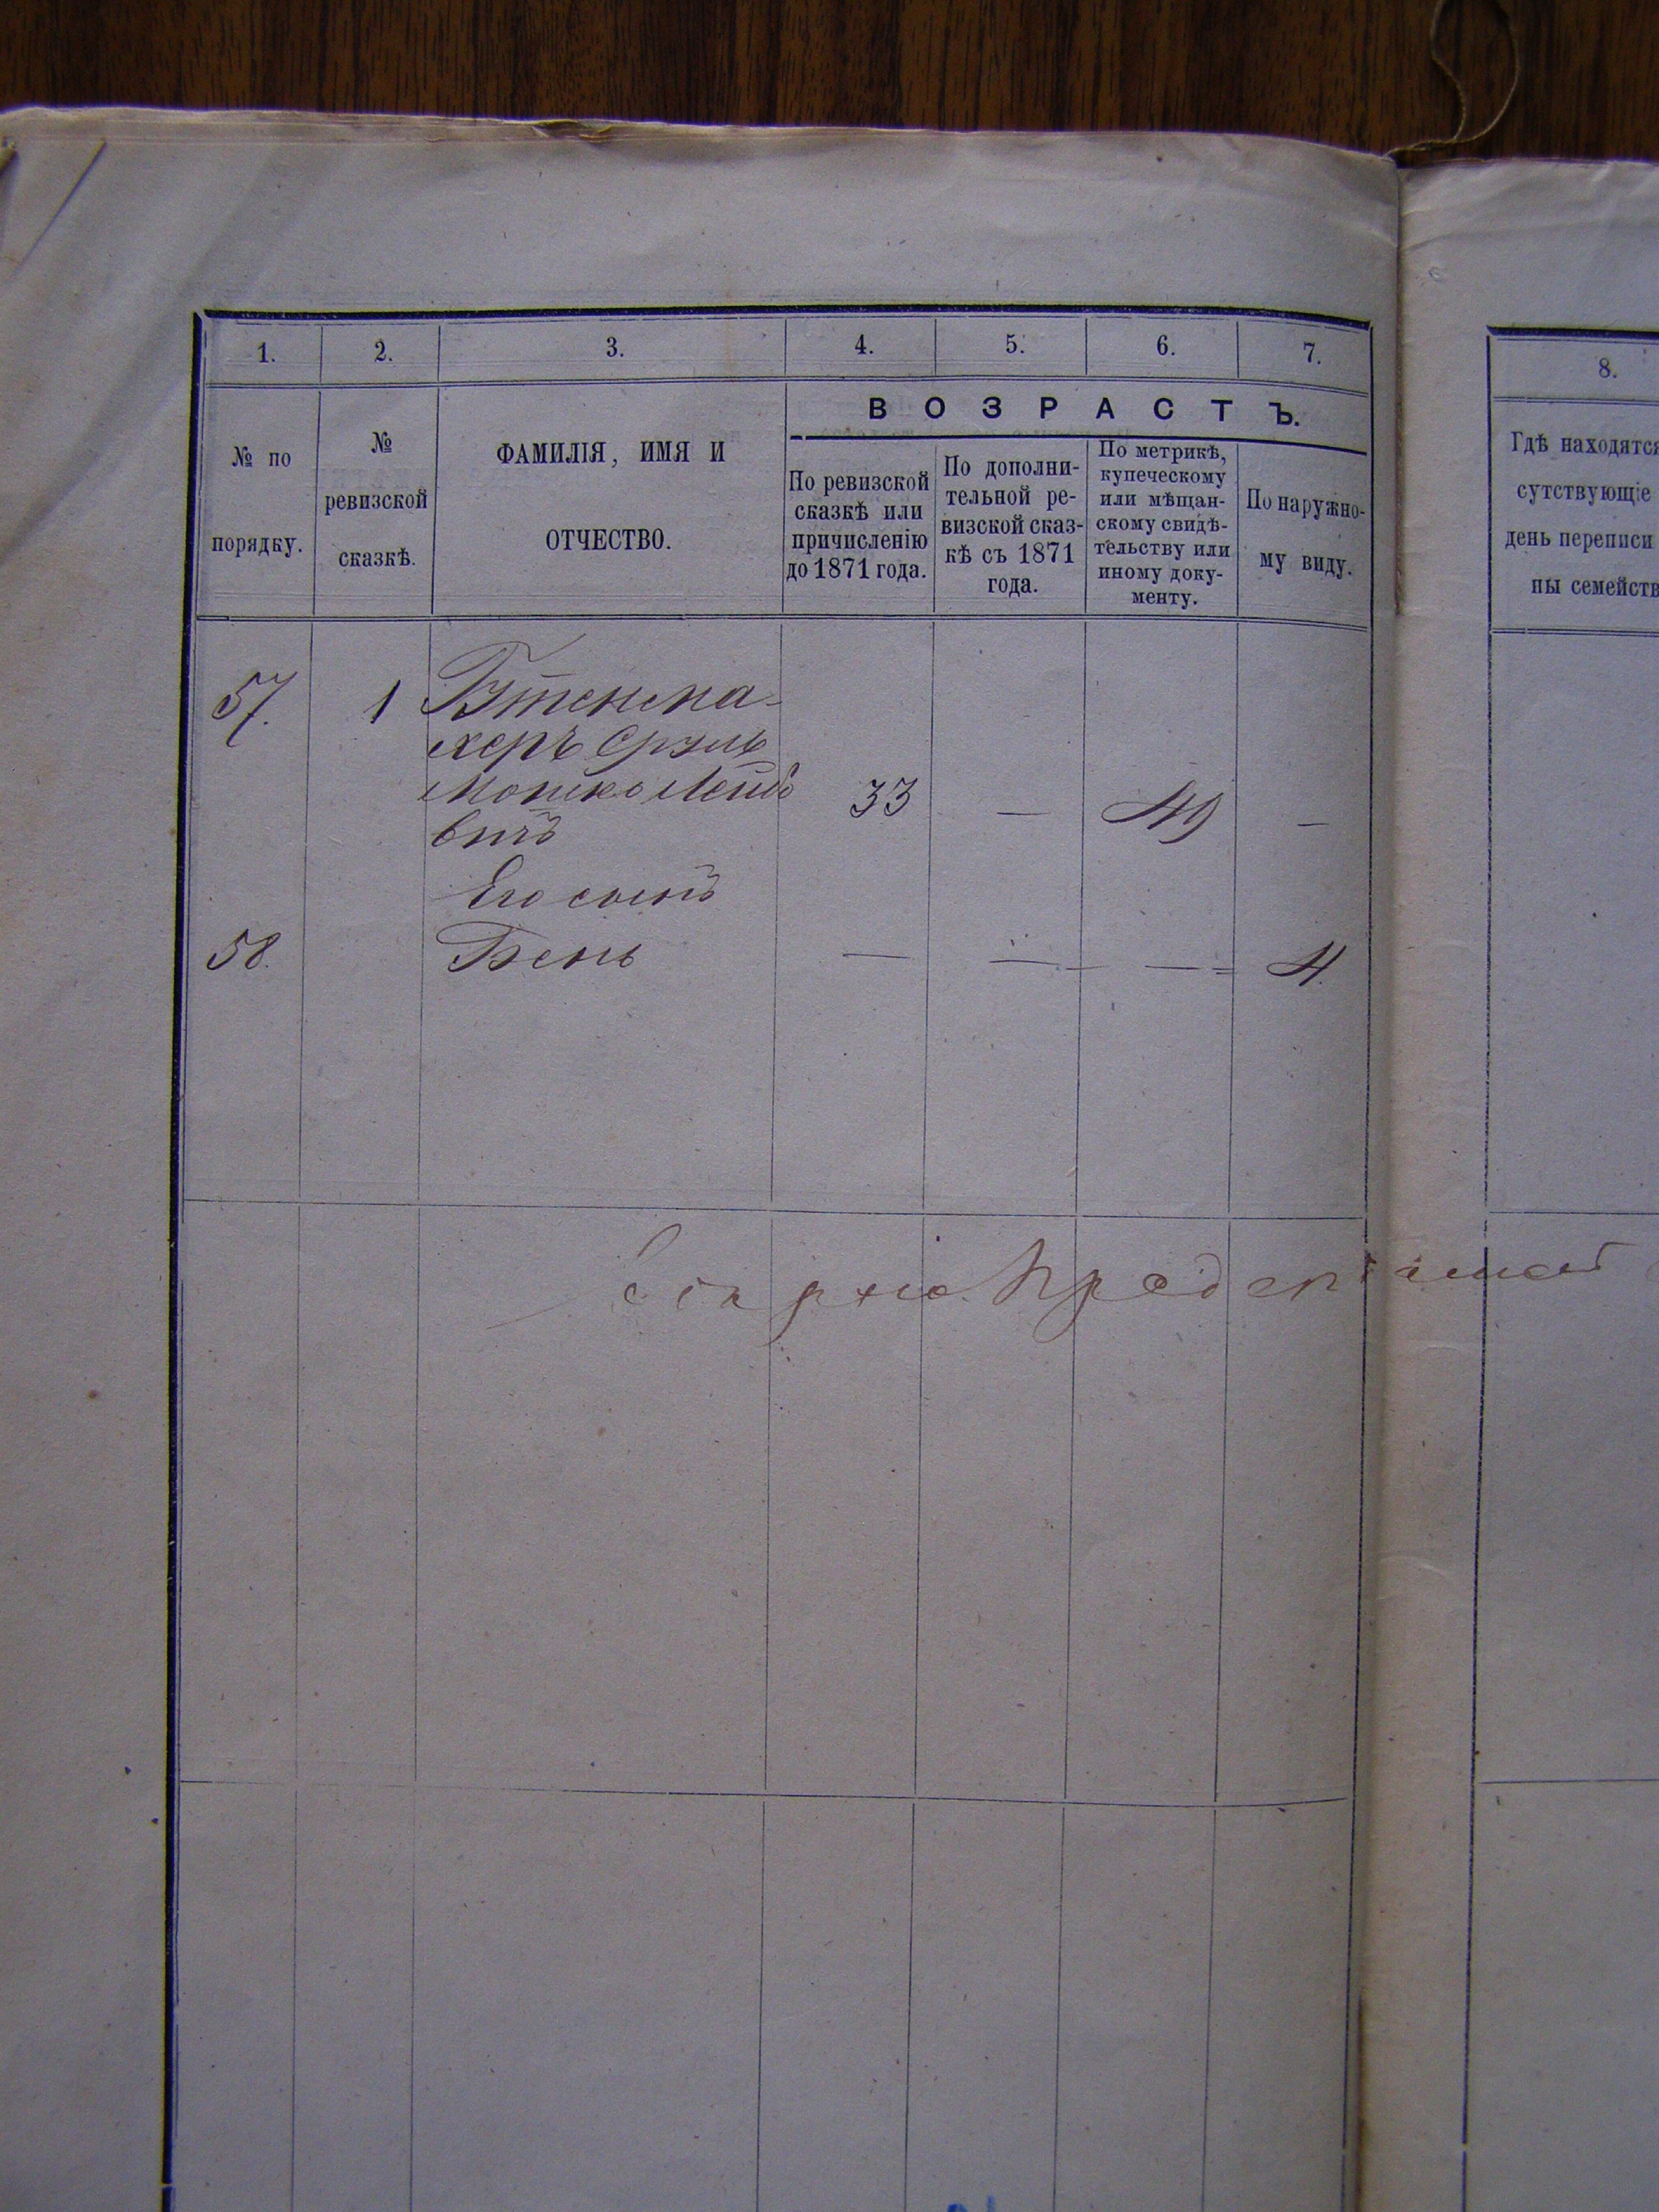 1. 2. 3. 4. 5. 6. 7.
№ по порядку.
№ ревизской сказкѣ.
ФАМИЛІЯ, ИМЯ И
ОТЧЕСТВО.
ВОЗРАСТЪ.
По ревизской
сказкѣ или
причисленію
до 1871 года.
По дополни-
тельной ре-
визской сказ-
кѣ съ 1871
года.
По метрикѣ,
купеческому
или мѣщан-
скому свидѣ-
тельству или
иному доку-
менту.
По наружно-
му виду.
57. 1
херъ Сруль
Мошко Лейбо 33 — 49 —
вичъ
Его сынъ
58. Бень — — — 4.
8.
Гдѣ находятся
сутствующіе
день переписи
ны семейств